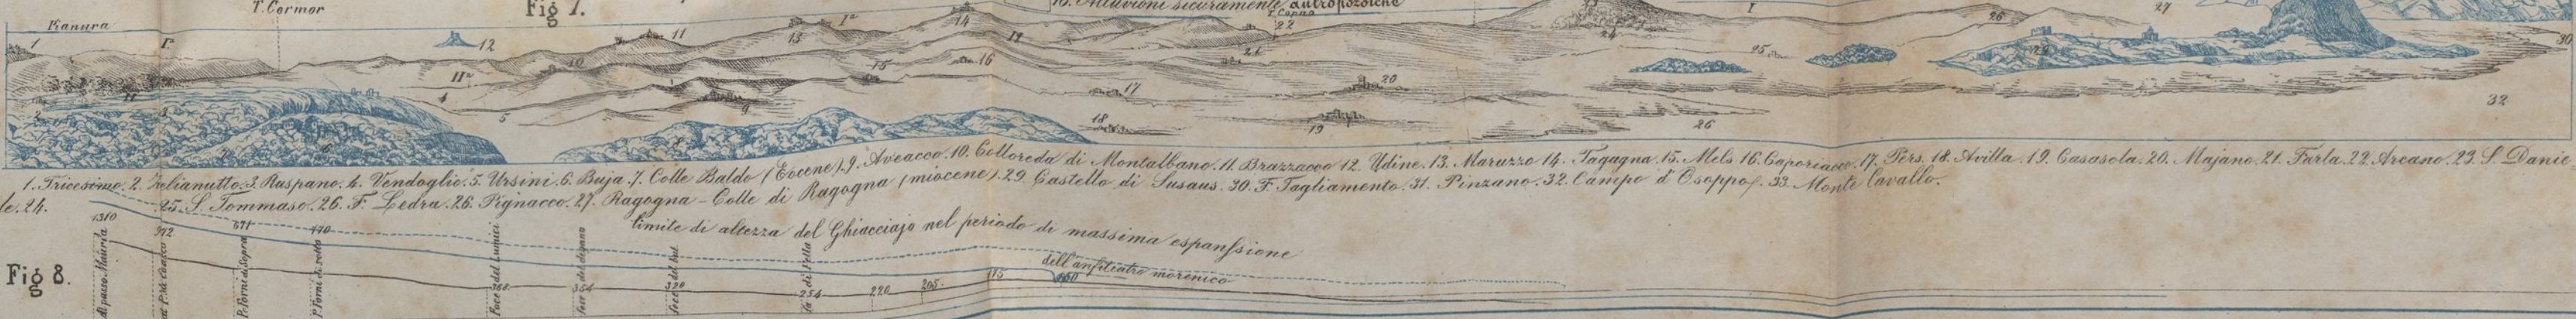 T. Cormor
Fig 7.
10. Alluvioni sicuramente antropozoiche
Pianura
T. Corno
1. Tricesimo. 2. Zelianutto. 3. Raspano. 4. Vendoglio. 5. Ursini. 6. Buja. 7. Colle Baldo (Eocene). 9. Aveacco. 10. Colloreda di Montalbano. 11. Brazzacco 12. Udine. 13. Maruzzo 14. Fagagna. 15. Mels 16. Caporiacco. 17. Pers. 18. Avilla. 19. Casasola. 20. Majano. 21. Farla. 22. Arcano. 23. S. Danie-
le. 24. 25. S. Tommaso. 26. F. Ledra. 26. Pignacco. 27. Ragogna - Colle di Ragogna (miocene). 29. Castello di Susaus. 30. F. Tagliamento. 31. Pinzano. 32. Campo d'Osoppo. 33. Monte Cavallo.
limite di altezza del Ghiacciajo nel periodo di massima espanssione
dell'anfiteatro morenico
Fig 8.
1310
Al passo Mauria
P. Forni di Sopra
671
P. Forni di sotto
770
Foce del Lumiei
360
foce del degano
354
foce del but
320
254
220
205
175
160